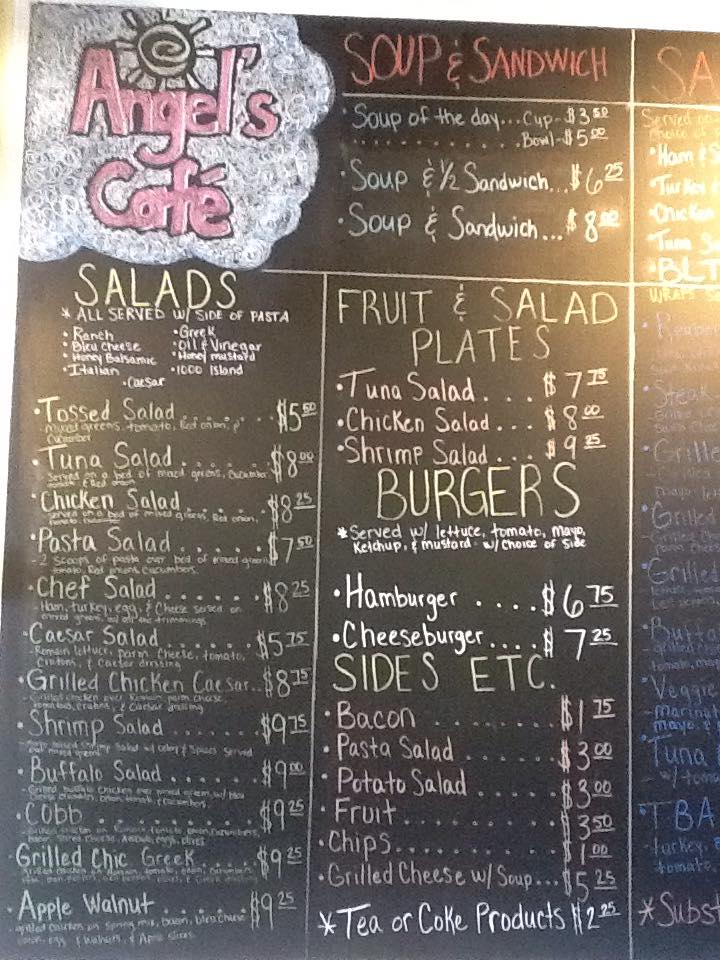 Angel's
Café
SOUP & SANDWICH
• Soup of the day...Cup-$3.50
Bowl-$5.00
• Soup & 1/2 Sandwich...$6.25
• Soup & Sandwich...$8.00
SALADS
* ALL SERVED W/ SIDE OF PASTA
• Ranch • Greek
• Bleu Cheese • Oil & Vinegar
• Honey Balsamic • Honey mustard
• Italian • 1000 Island
• Caesar
• Tossed Salad.......$5.50
mixed greens, tomato, Red onion, &
Cucumber
• Tuna Salad.......$8.00
Served on a bed of mixed greens, Cucumber
tomato & Red onion
• Chicken Salad.....$8.25
served on a bed of mixed greens, Red onion,
tomato
• Pasta Salad......$7.50
2 scoops of pasta over bed of mixed greens
tomato, Red onions cucumbers
• Chef Salad......$8.25
Ham, turkey, egg, & Cheese served on
mixed greens, w/ all the trimmings
• Caesar Salad.....$5.75
Romain lettuce, parm Cheese, tomato,
Crutons, & Caesar dressing
• Grilled Chicken Caesar..$8.75
Grilled chicken over Romain parm cheese,
& Caesar dressing
• Shrimp Salad......$9.75
Shrimp Salad w/ Celery & Spices served
over mixed greens
• Buffalo Salad......$9.00
Grilled buffalo Chicken over mixed greens w/ bleu
Cheese onion, tomato & Cucumbers
• Cobb.........$9.25
Grilled chicken on Romain tomato, onion, cucumbers,
bacon, Cheese, eggs, olives
• Grilled Chic Greek....$9.25
Grilled chicken on Romain, tomato, onion, cucumbers,
• Apple Walnut.....$9.25
grilled chicken on spring mix, bacon, bleu cheese
onion, egg & Walnuts, & Apple slices
FRUIT & SALAD
PLATES
• Tuna Salad....$7.75
• Chicken Salad...$8.00
• Shrimp Salad...$9.25
BURGERS
* Served w/ lettuce, tomato, mayo,
Ketchup, & mustard - w/ choice of side
• Hamburger....$6.75
• Cheeseburger....$7.25
SIDES ETC.
• Bacon.........$1.75
• Pasta Salad......$3.00
• Potato Salad.....$3.00
• Fruit..........$3.50
• Chips..........$1.00
• Grilled Cheese w/ Soup...$5.25
* Tea or Coke Products $2.25
SA
Served on
choice of
• Ham & S
• Turkey
• Chicken
• Tuna Sa
• BLT
WRAPS
• Steak
• Grille
mayo
• Grilled
• Grilled
• Buffa
• Veggie
marinat
mayo, &
• Tuna
w/ tom
• TBA
turkey,
tomato,
* Subst